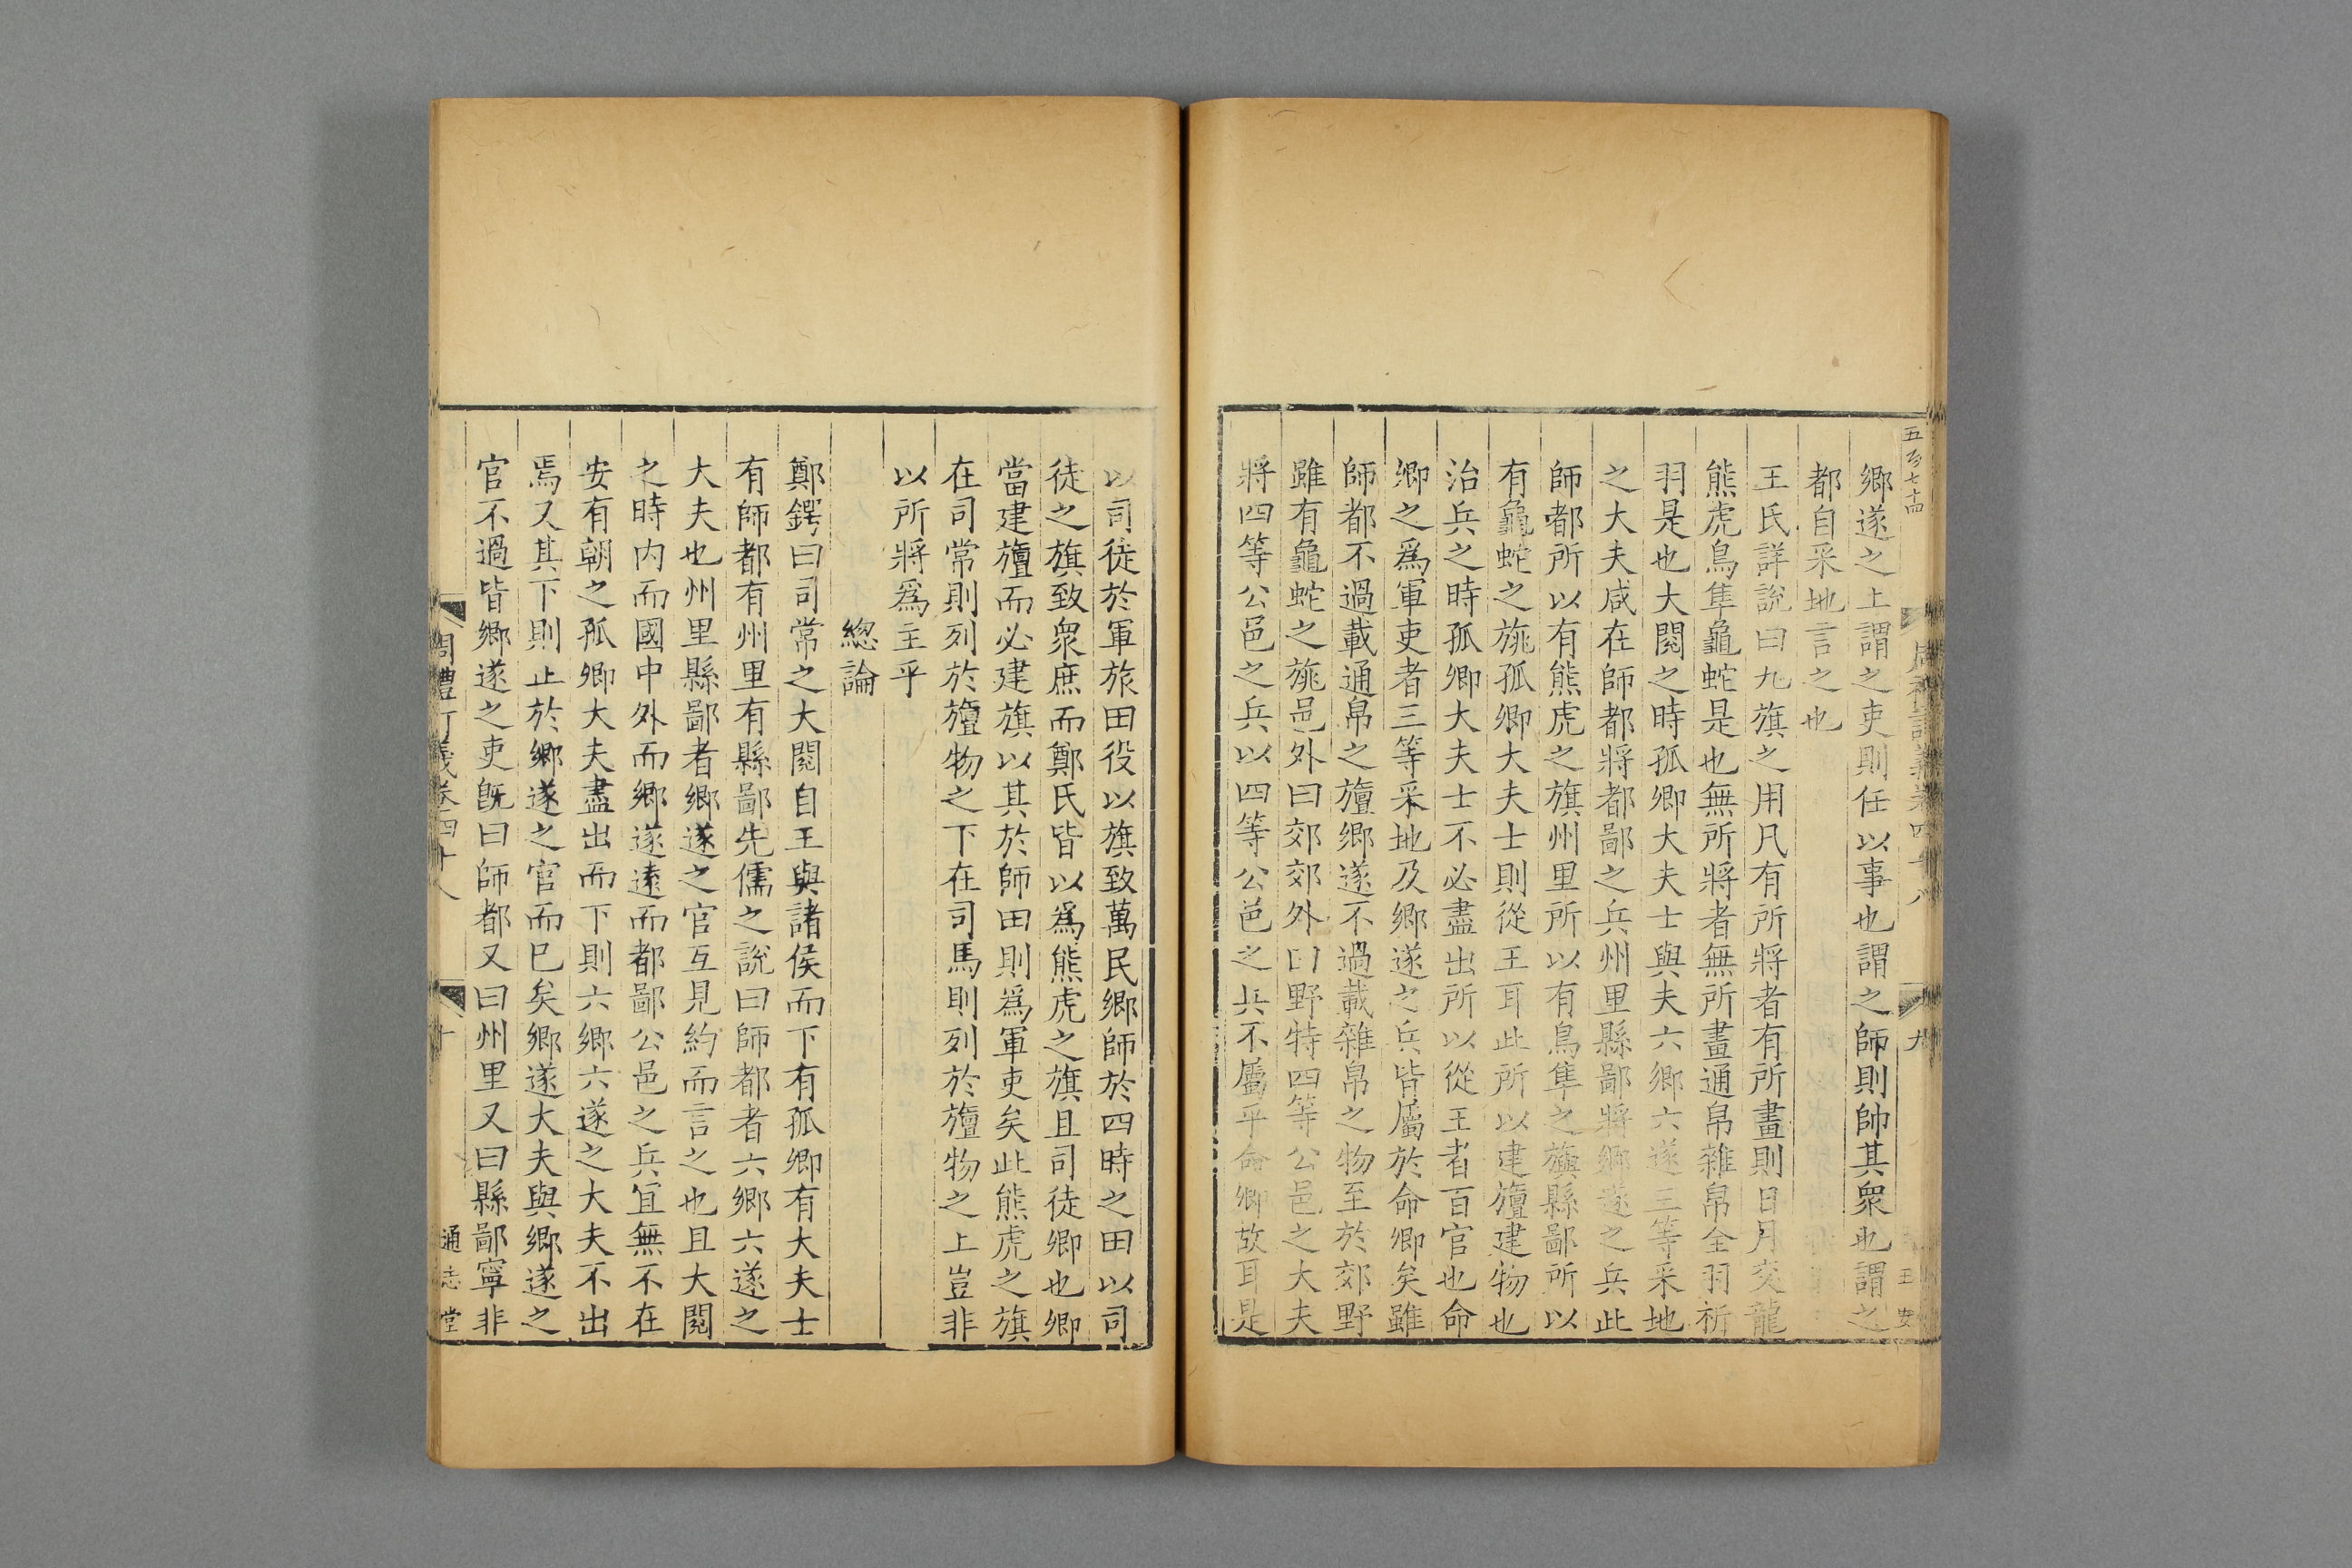 五百七十四
周禮訂義卷四十八
九
王
安
鄉遂之上謂之吏則任以事也謂之師則帥其衆也謂之
都自采地言之也
王氏詳說曰九旗之用凡有所將者有所畫則日月交龍
熊虎鳥隼龜蛇是也無所將者無所畫通帛雜帛全羽析
羽是也大閱之時孤卿大夫士與夫六鄉六遂三等采地
之大夫咸在師都將都鄙之兵州里縣鄙將鄉遂之兵此
師都所以有熊虎之旗州里所以有鳥隼之旟縣鄙所以
有龜蛇之旐孤卿大夫士則從王耳此所以建旜建物也
治兵之時孤卿大夫士不必盡出所以從王者百官也命
卿之爲軍吏者三等采地及鄉遂之兵皆屬於命卿矣雖
師都不過載通帛之旜鄉遂不過載雜帛之物至於郊野
雖有龜蛇之旐邑外曰郊郊外曰野特四等公邑之大夫
將四等公邑之兵以四等公邑之兵不屬乎命卿故耳是
以司徒於軍旅田役以旗致萬民鄉師於四時之田以司
徒之旗致衆庶而鄭氏皆以爲熊虎之旗且司徒卿也卿
當建旜而必建旗以其於師田則爲軍吏矣此熊虎之旗
在司常則列於旜物之下在司馬則列於旜物之上豈非
以所將爲主乎
總論
鄭鍔曰司常之大閱自王與諸侯而下有孤卿有大夫士
有師都有州里有縣鄙先儒之說曰師都者六鄉六遂之
大夫也州里縣鄙者鄉遂之官互見約而言之也且大閱
之時内而國中外而鄉遂遠而都鄙公邑之兵宜無不在
安有朝之孤卿大夫盡出而下則六鄉六遂之大夫不出
焉又其下則止於鄉遂之官而巳矣鄉遂大夫與鄉遂之
官不過皆鄉遂之吏旣曰師都又曰州里又曰縣鄙寧非
周禮訂義卷四十八
十
通志堂